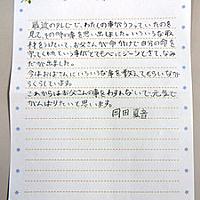 最近のテレビで、わたしの事がうつっていたのを
見て、その時の事を思い出しました。いろいろな取
材をうけていて、お父さんが命がけで自分の命を
守ってくれたという事がとてもジーンときて、なみ
だが出ました。
今はおばさんにいろいろな事を教えてもらいなが
らくらしています。
これからはお父さんの事をわすれないで、元気で
がんばりたいと思います。
岡田 夏音